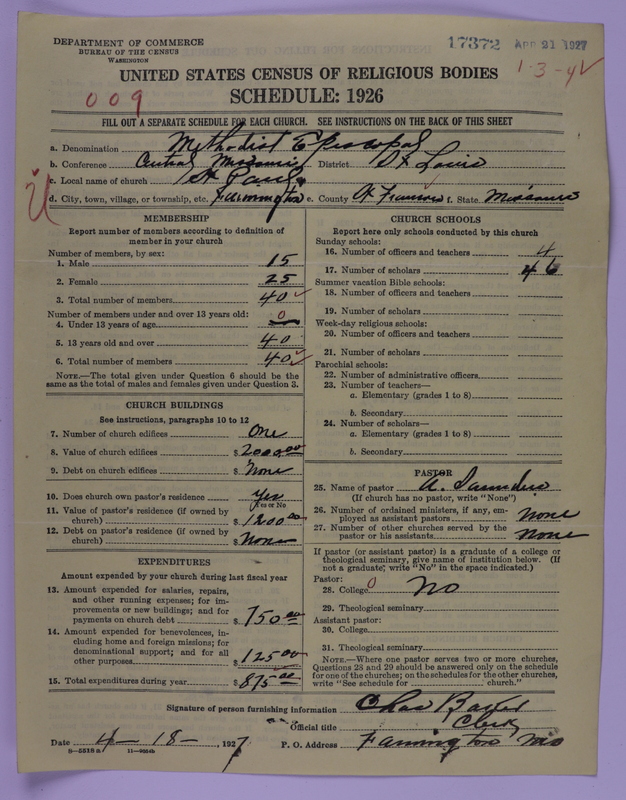 DEPARTMENT OF COMMERCE
BUREAU OF THE CENSUS
WASHINGTON
17372 APR 21 1927
1-3-4
UNITED STATES CENSUS OF RELIGIOUS BODIES
009
SCHEDULE: 1926
FILL OUT A SEPARATE SCHEDULE FOR EACH CHURCH. SEE INSTRUCTIONS ON THE BACK OF THIS SHEET
a. Denomination Methodist Episcopal
b. Conference Central Missouri District St Louis
c. Local name of church St Pauls
d. City, town, village, or township, etc. Farmington e. County St Francois f. State Missouri
MEMBERSHIP
Report number of members according to definition of
member in your church
Number of members, by sex:
1. Male 15
2. Female 25
3. Total number of members 40
Number of members under and over 13 years old:
4. Under 13 years of age 0
5. 13 years old and over 40
6. Total number of members 40
NOTE.—The total given under Question 6 should be the
same as the total of males and females given under Question 3.
CHURCH BUILDINGS
See instructions, paragraphs 10 to 12
7. Number of church edifices One
8. Value of church edifices $ 2000.00
9. Debt on church edifices $ None
10. Does church own pastor's residence Yes
Yes or No
11. Value of pastor's residence (if owned by
church) $ 1200.00
12. Debt on pastor's residence (if owned by
church) $ None
EXPENDITURES
Amount expended by your church during last fiscal year
13. Amount expended for salaries, repairs,
and other running expenses; for im-
provements or new buildings; and for
payments on church debt $ 750.00
14. Amount expended for benevolences, in-
cluding home and foreign missions; for
denominational support; and for all
other purposes $ 125.00
15. Total expenditures during year $ 875.00
CHURCH SCHOOLS
Report here only schools conducted by this church
Sunday schools:
16. Number of officers and teachers 4
17. Number of scholars 46
Summer vacation Bible schools:
18. Number of officers and teachers
19. Number of scholars
Week-day religious schools:
20. Number of officers and teachers
21. Number of scholars
Parochial schools:
22. Number of administrative officers
23. Number of teachers—
a. Elementary (grades 1 to 8)
b. Secondary
24. Number of scholars—
a. Elementary (grades 1 to 8)
b. Secondary
PASTOR
25. Name of pastor A. Saunders
(If church has no pastor, write "None")
26. Number of ordained ministers, if any, em-
ployed as assistant pastors None
27. Number of other churches served by the
pastor or his assistants None
If pastor (or assistant pastor) is a graduate of a college or
theological seminary, give name of institution below. (If
not a graduate, write "No" in the space indicated.)
Pastor:
28. College 0 No
29. Theological seminary
Assistant pastor:
30. College
31. Theological seminary
NOTE.—Where one pastor serves two or more churches,
Questions 28 and 29 should be answered only on the schedule
for one of the churches; on the schedules for the other churches,
write "See schedule for church."
Signature of person furnishing information Chas
Official title Clerk
Date 4-18-, 1927 P. O. Address Farmington Mo
D-5518 a 11-9204b